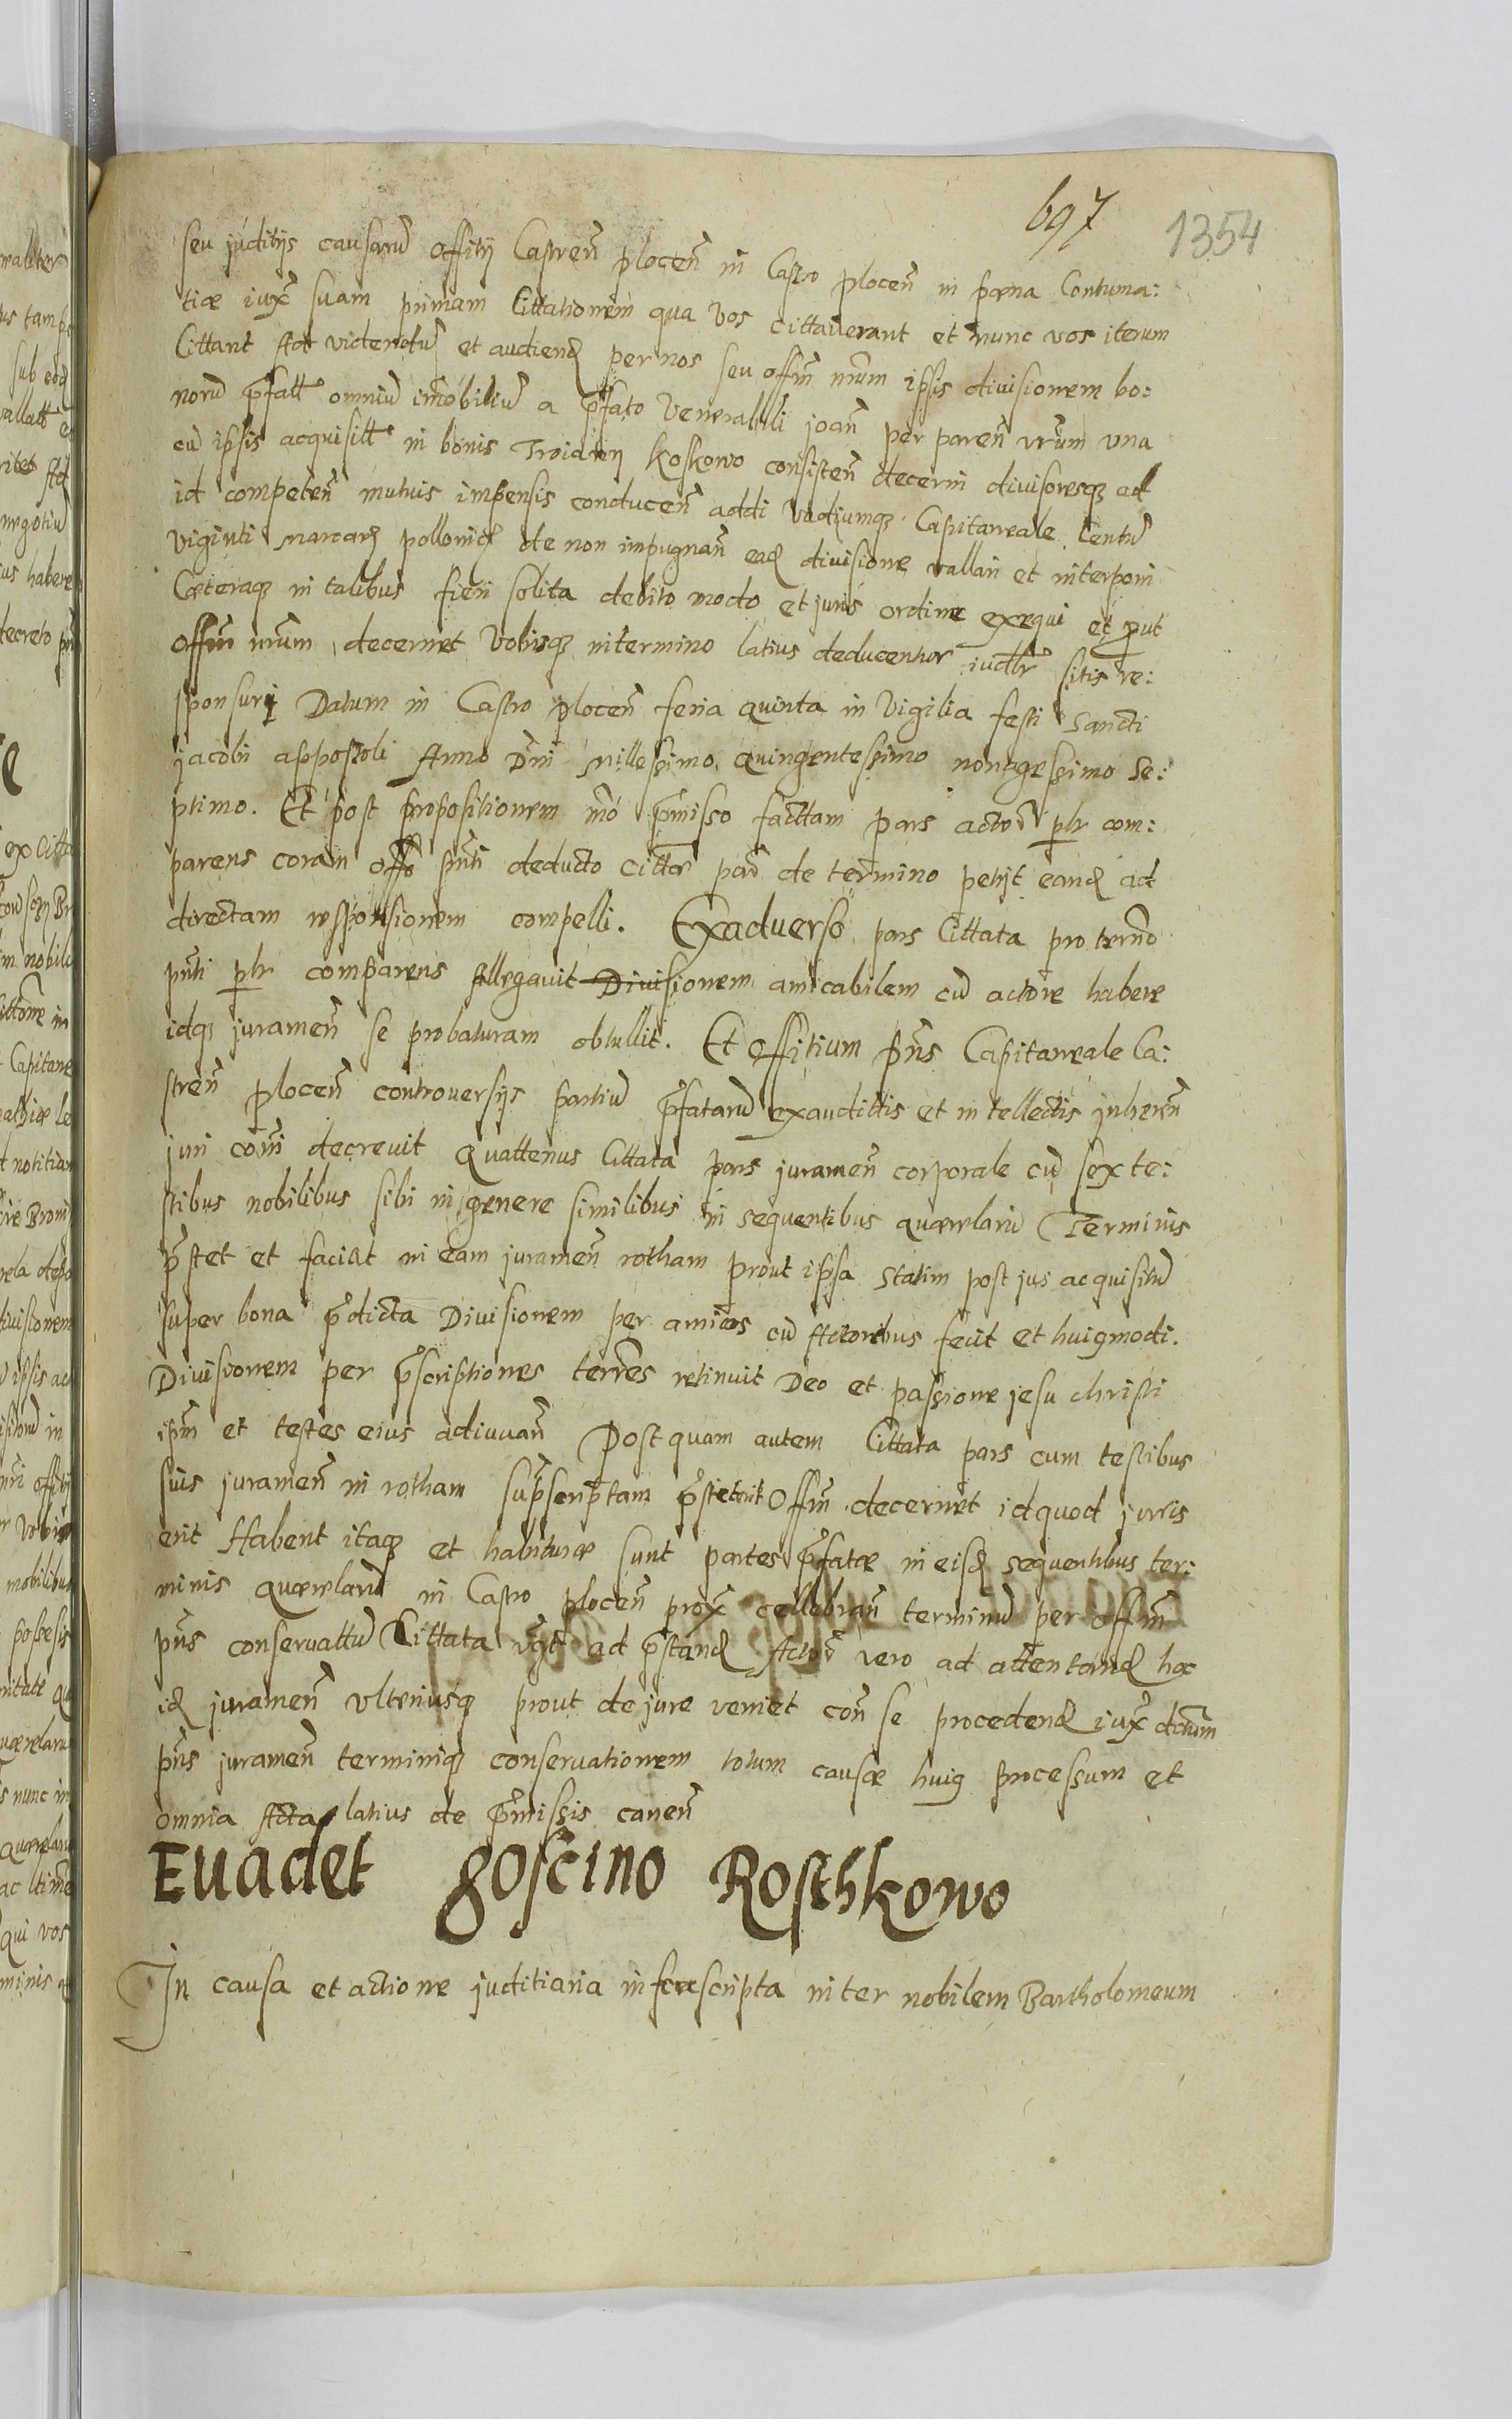 697
1354
seu juditijs causarũ offitij Castreñ ploceñ in Castro plocen̄ in pæna Contuma:
tiæ iux̃ suam primam Cittationem qua vos cittauerant et nunc vos iterum
Cittant Ad videndũ et audiend̃ per nos seu offm̃ nr̃um ipsis divisionem bo:
norũ p̃fatt omniũ im̃obiliũ a p̃fato Venerabili joañ per pareñ vr̃um vna
cũ ipsis acquisitt in bonis Troiany Koskowo consisteñ decerni divisoresq3 ad
id competeñ mutuis impensis conduceñ addi Vadiumq3 Capitaneale Centũ
viginti marcarũ pollonicã de non impugnañ ead̃ divisione vallari et interponi
Cæteraq3 in talibus fieri solita debito modo et juris ordine exequi et put
offm̃ nr̃um decernet Vobisq3 in termino latius deducentur iudlr̃ sitis re:
sponsuri Datum in Castro plocen̄ feria quinta in Vigilia festi Sancti
jacobi appostoli Anno Dñi Millessimo quingentessimo nonagessimo Se:
ptimo. Et post propositionem mõ p̃misso facttam pars actoã plr com:
parens coram offo pñti deducto cittõe parã de termino petijt eand̃ ad
directam responsionem compelli. Exadverso pars Cittata pro termõ
pñti plr comparens Allegauit Divisionem amicabilem cũ actore habere
idq3 jurameñ se probaturam obtullit. Et offitium pñs Capitaneale Ca:
streñ plocen̄ controversijs partiũ p̃fatarũ exaudittis et intellectis inhereñ
juri com̃i decrevit Quattenus Cittata pars jurameñ corporale cũ sex te:
stibus nobilibus sibi in genere similibus in sequentibus quærelarũ Terminis
p̃stet et faciat in eam jurameñ rotham prout ipsa statim post jus acquisitũ
super bona p̃dicta Divisionem per amicos cũ Actoribus fecit et huigmodi.
Divisionem per p̃scriptiones terr̃es retinuit Deo et passione jesu christi
ipm̃ et testes eius adiuvañ Postquam autem Cittata pars cum testibus
suis jurameñ in rotham sup̃scriptam p̃stiterit Offm̃ decernet idquod juris
erit Habent itaq3 et habituræ sunt partes p̃fatæ in eisd̃ sequentibus ter:
minis quærelarũ in Castro plocen̄ prox̃ cellebrañ terminũ per offm̃
pñs conservattũ Cittata vg̃t ad p̃stand̃ Actoã vero ad attentand̃ hoc
id̃ jurameñ vlteriusq3 prout de jure veniet coñ se procedend̃ iux̃ dctum
pñs jurameñ terminiq3 conservationem totum causæ huig processum et
omnia Acta latius de p̃missis caneñ
Evadet goscino Rosthkowo
In causa et actione juditiaria infrascripta inter nobilem Bartholomeum